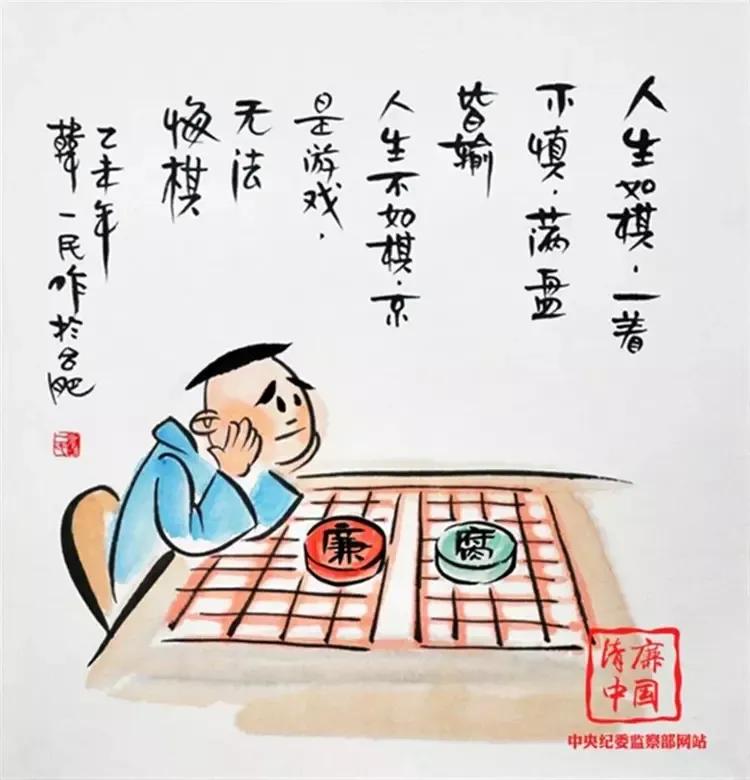 人生如棋，一着
不慎，满盘
皆输
人生不如棋，京
是游戏，
无法
悔棋
乙未年
韓一民作於合肥
廉
腐
清廉
中国
中央纪委监察部网站